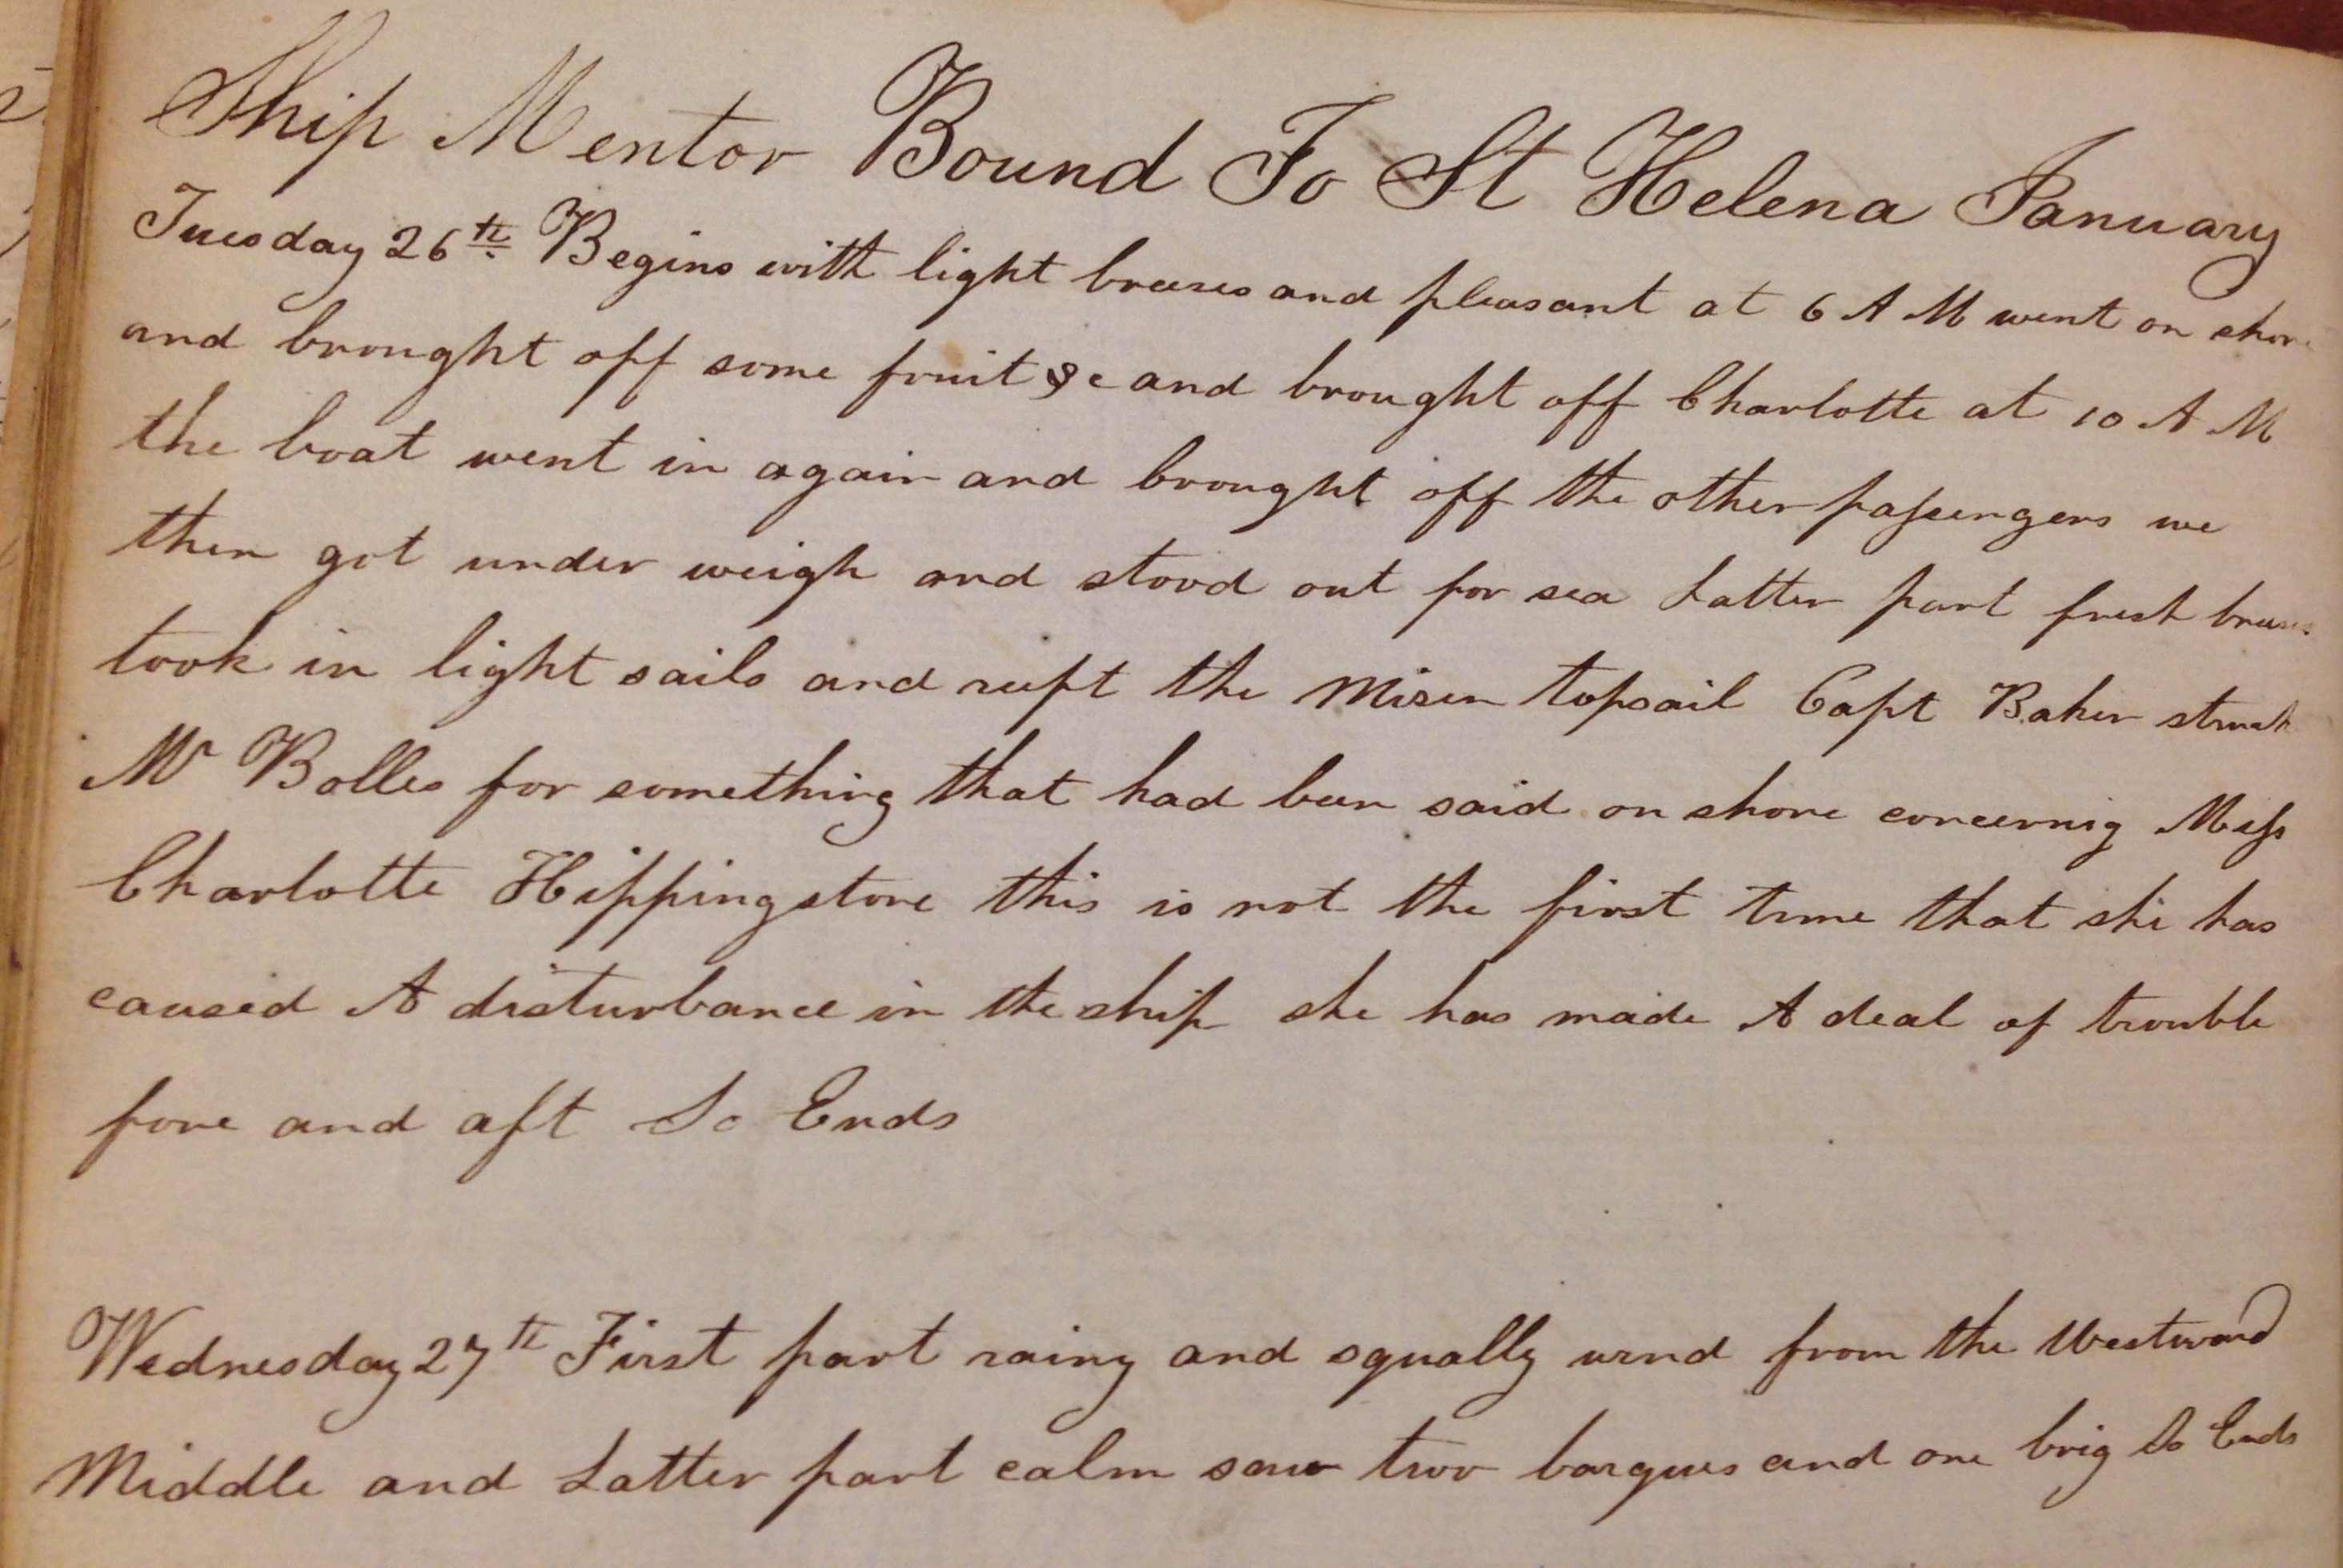 Ship Mentor Bound To St Helena January
Tuesday 26th Begins with light breeses and pleasant at 6 A M went on shore
and brought off some fruit &c and brought off Charlotte at 10 A M
the boat went in again and brought off the other passengers we
then got under weigh and stood out for sea Latter part fresh breeses
took in light sails and reeft the Misen topsail Capt Baker struck
Mr Bolles for something that had been said on shore concernig Miss
Charlotte Hippingstone this is not the first time that she has
caused A disturbance in the ship she has made A deal of trouble
fore and aft So Ends
Wednesday 27th First part rainy and squally wind from the Westward
Middle and Latter part calm saw two barques and one brig So Ends